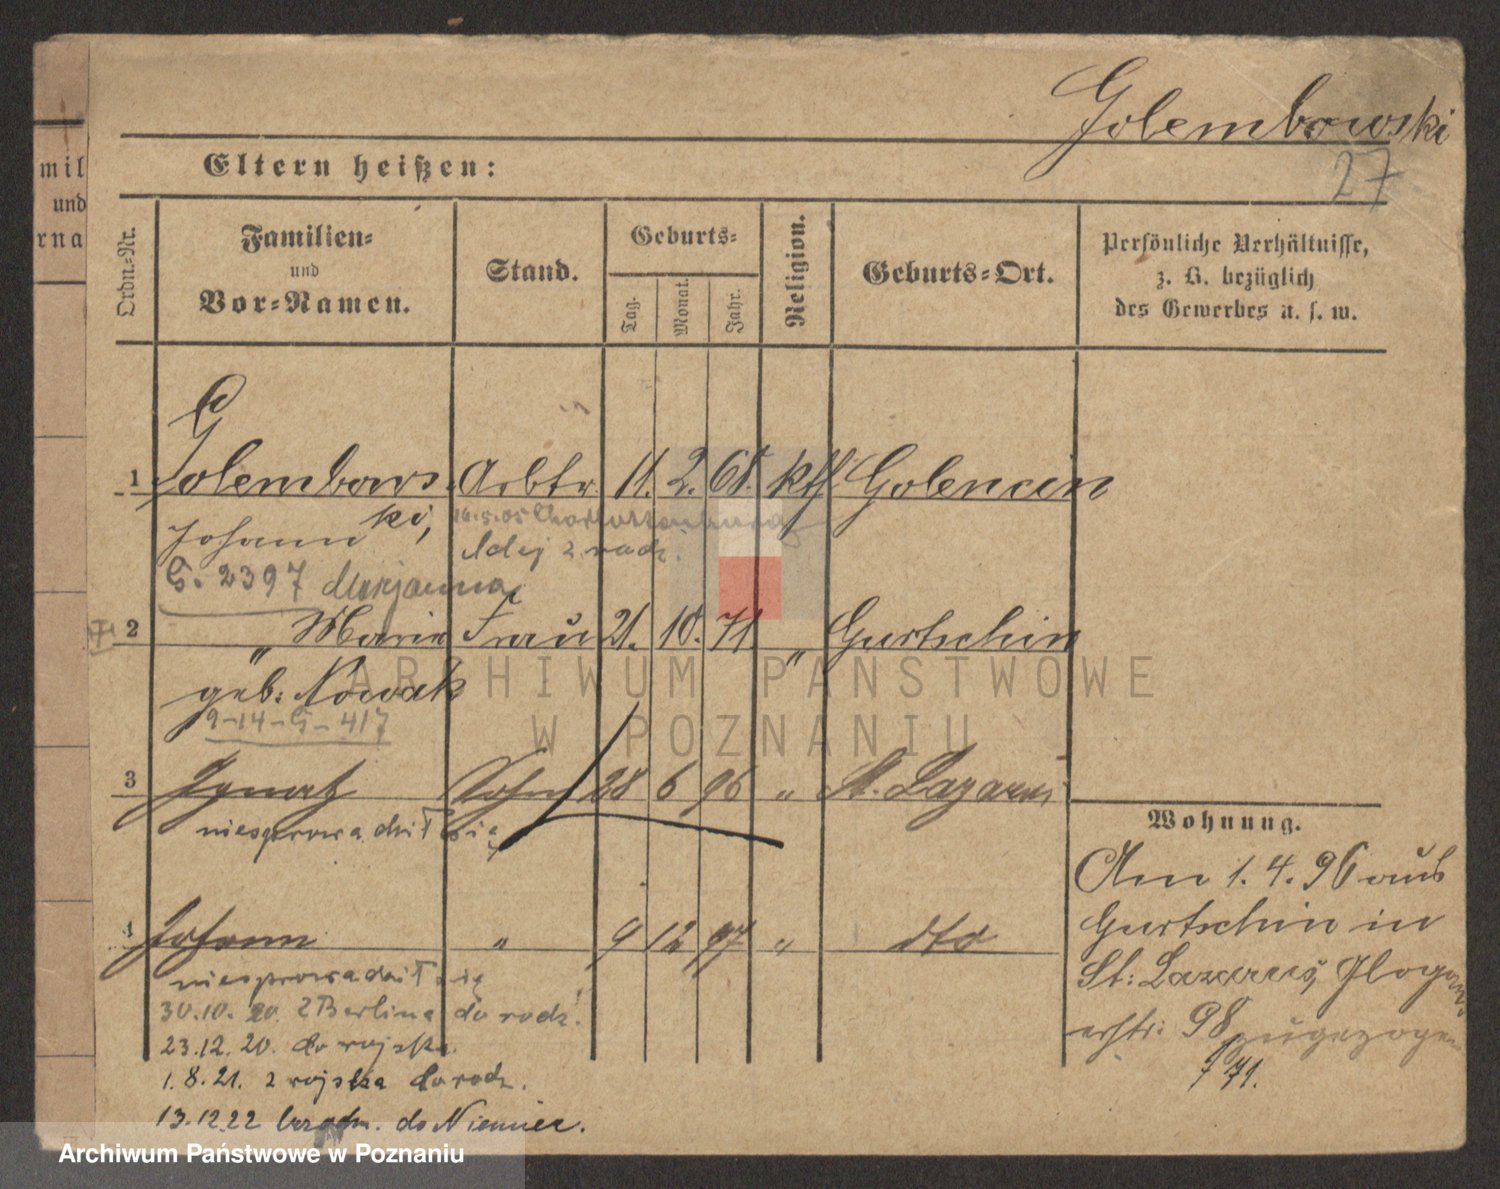 Golembowski
27
Eltern heißen:
mil
und
rna
Ordn.-Nr.
Familien-
und
Vor-Namen.
Stand.
Geburts-
Tag.
Monat.
Jahr.
Religion.
Geburts-Ort.
Persönliche Verhältnisse,
z. B. bezüglich
des Gewerbes u. s. w.
1 Golembows- Arbtr 11. 2. 68. kth Golencin
ki,
Johann
16.5.05 Charlottenburg
z rodz.
G. 2397 Marjanna
2 " Marie Frau 21. 10. 71 " Gurtschin
geb: Nowak
9-14-G-417
3 Ignatz Sohn 28 6 96 " St. Lazarus
niesprowadził się
4 Johann " 9 12 97 " dto
niesprowadził się
30.10.20. z Berlina do rodz.
23.12.20. do wojska.
1.8.21. z wojska do rodz.
13.12.22 do Niemiec.
Wohnung.
Am 1.4.96 aus
Gurtschin in
St: Lazarus, Glogau-
erstr: 98 zugezogen
f 71.
ARCHIWUM PAŃSTWOWE
W POZNANIU
Archiwum Państwowe w Poznaniu